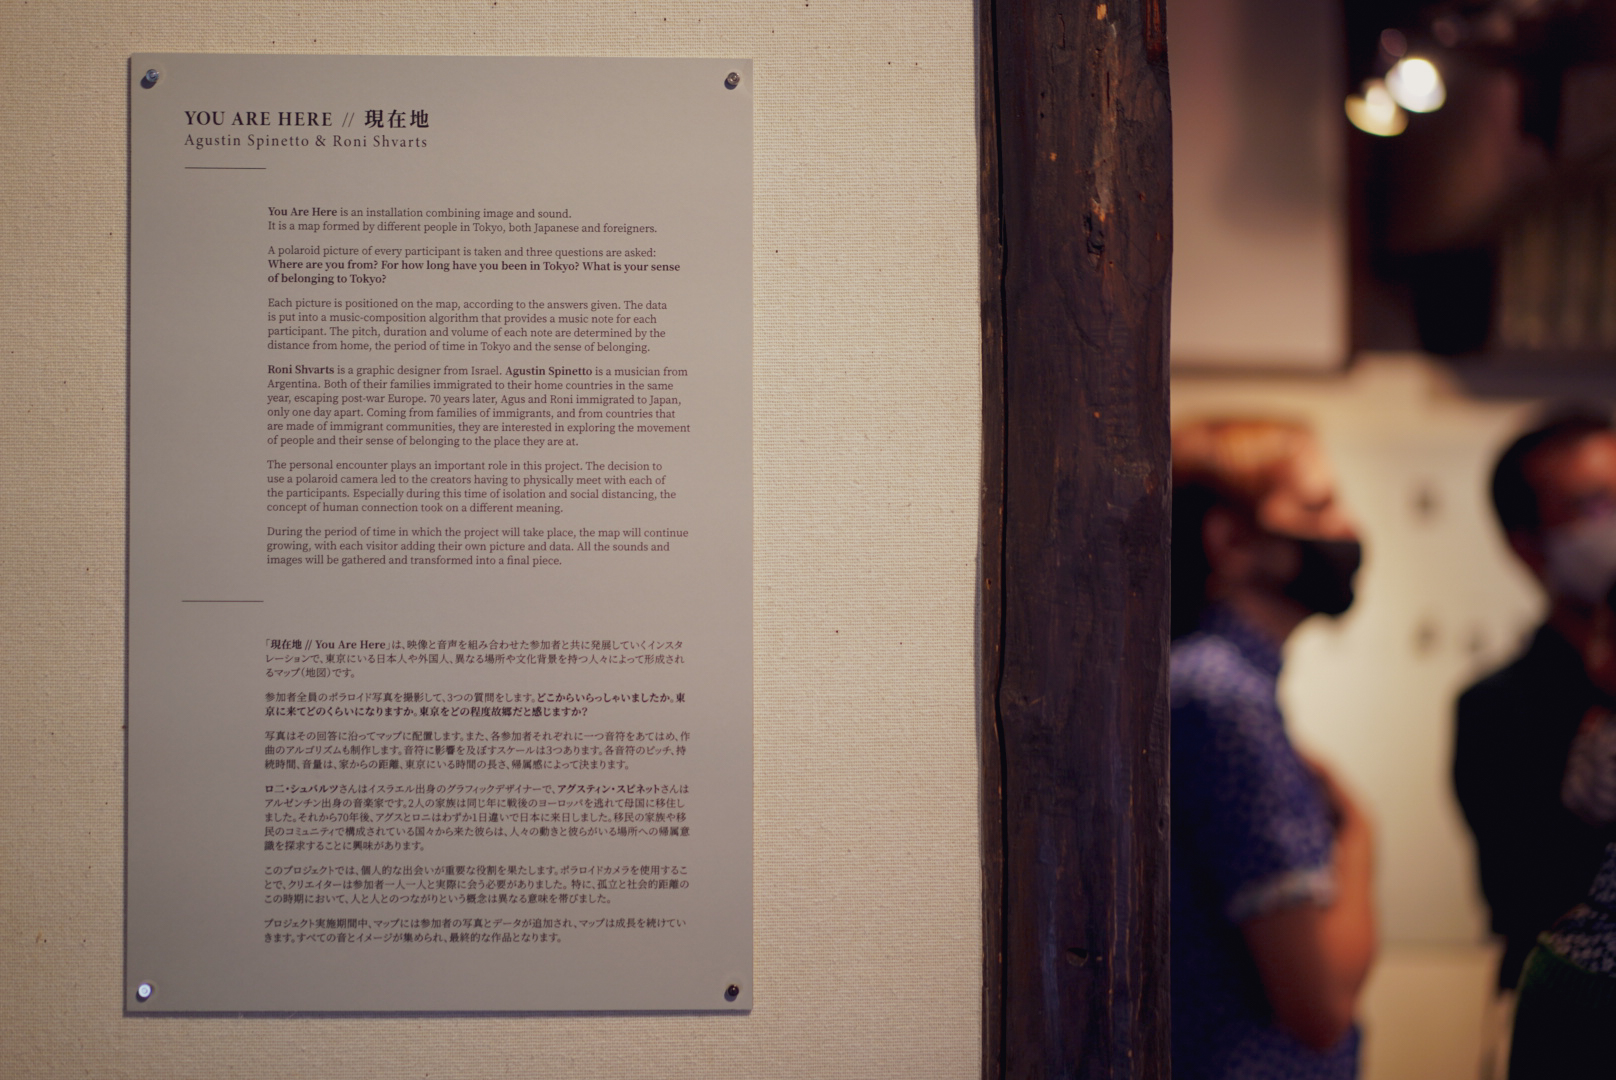 YOU ARE HERE // 現在地
Agustin Spinetto & Roni Shvarts
You Are Here is an installation combining image and sound.
It is a map formed by different people in Tokyo, both Japanese and foreigners.
A polaroid picture of every participant is taken and three questions are asked:
Where are you from? For how long have you been in Tokyo? What is your sense
of belonging to Tokyo?
Each picture is positioned on the map, according to the answers given. The data
is put into a music-composition algorithm that provides a music note for each
participant. The pitch, duration and volume of each note are determined by the
distance from home, the period of time in Tokyo and the sense of belonging.
Roni Shvarts is a graphic designer from Israel. Agustin Spinetto is a musician from
Argentina. Both of their families immigrated to their home countries in the same
year, escaping post-war Europe. 70 years later, Agus and Roni immigrated to Japan,
only one day apart. Coming from families of immigrants, and from countries that
are made of immigrant communities, they are interested in exploring the movement
of people and their sense of belonging to the place they are at.
The personal encounter plays an important role in this project. The decision to
use a polaroid camera led to the creators having to physically meet with each of
the participants. Especially during this time of isolation and social distancing, the
concept of human connection took on a different meaning.
During the period of time in which the project will take place, the map will continue
growing, with each visitor adding their own picture and data. All the sounds and
images will be gathered and transformed into a final piece.
「現在地 // You Are Here」は、映像と音声を組み合わせた参加者と共に発展していくインスタ
レーションで、東京にいる日本人や外国人、異なる場所や文化背景を持つ人々によって形成され
るマップ（地図）です。
参加者全員のポラロイド写真を撮影して、3つの質問をします。どこからいらっしゃいましたか。東
京に来てどのくらいになりますか。東京をどの程度故郷だと感じますか？
写真はその回答に沿ってマップに配置します。また、各参加者それぞれに一つ音符をあてはめ、作
曲のアルゴリズムも制作します。音符に影響を及ぼすスケールは3つあります。各音符のピッチ、持
続時間、音量は、家からの距離、東京にいる時間の長さ、帰属感によって決まります。
ロニ・シュバルツさんはイスラエル出身のグラフィックデザイナーで、アグスティン・スピネットさんは
アルゼンチン出身の音楽家です。2人の家族は同じ年に戦後のヨーロッパを逃れて母国に移住し
ました。それから70年後、アグスとロニはわずか1日違いで日本に来日しました。移民の家族や移
民のコミュニティで構成されている国々から来た彼らは、人々の動きと彼らがいる場所への帰属意
識を探求することに興味があります。
このプロジェクトでは、個人的な出会いが重要な役割を果たします。ポラロイドカメラを使用するこ
とで、クリエイターは参加者一人一人と実際に会う必要がありました。特に、孤立と社会的距離の
この時期において、人と人とのつながりという概念は異なる意味を帯びました。
プロジェクト実施期間中、マップには参加者の写真とデータが追加され、マップは成長を続けてい
きます。すべての音とイメージが集められ、最終的な作品となります。